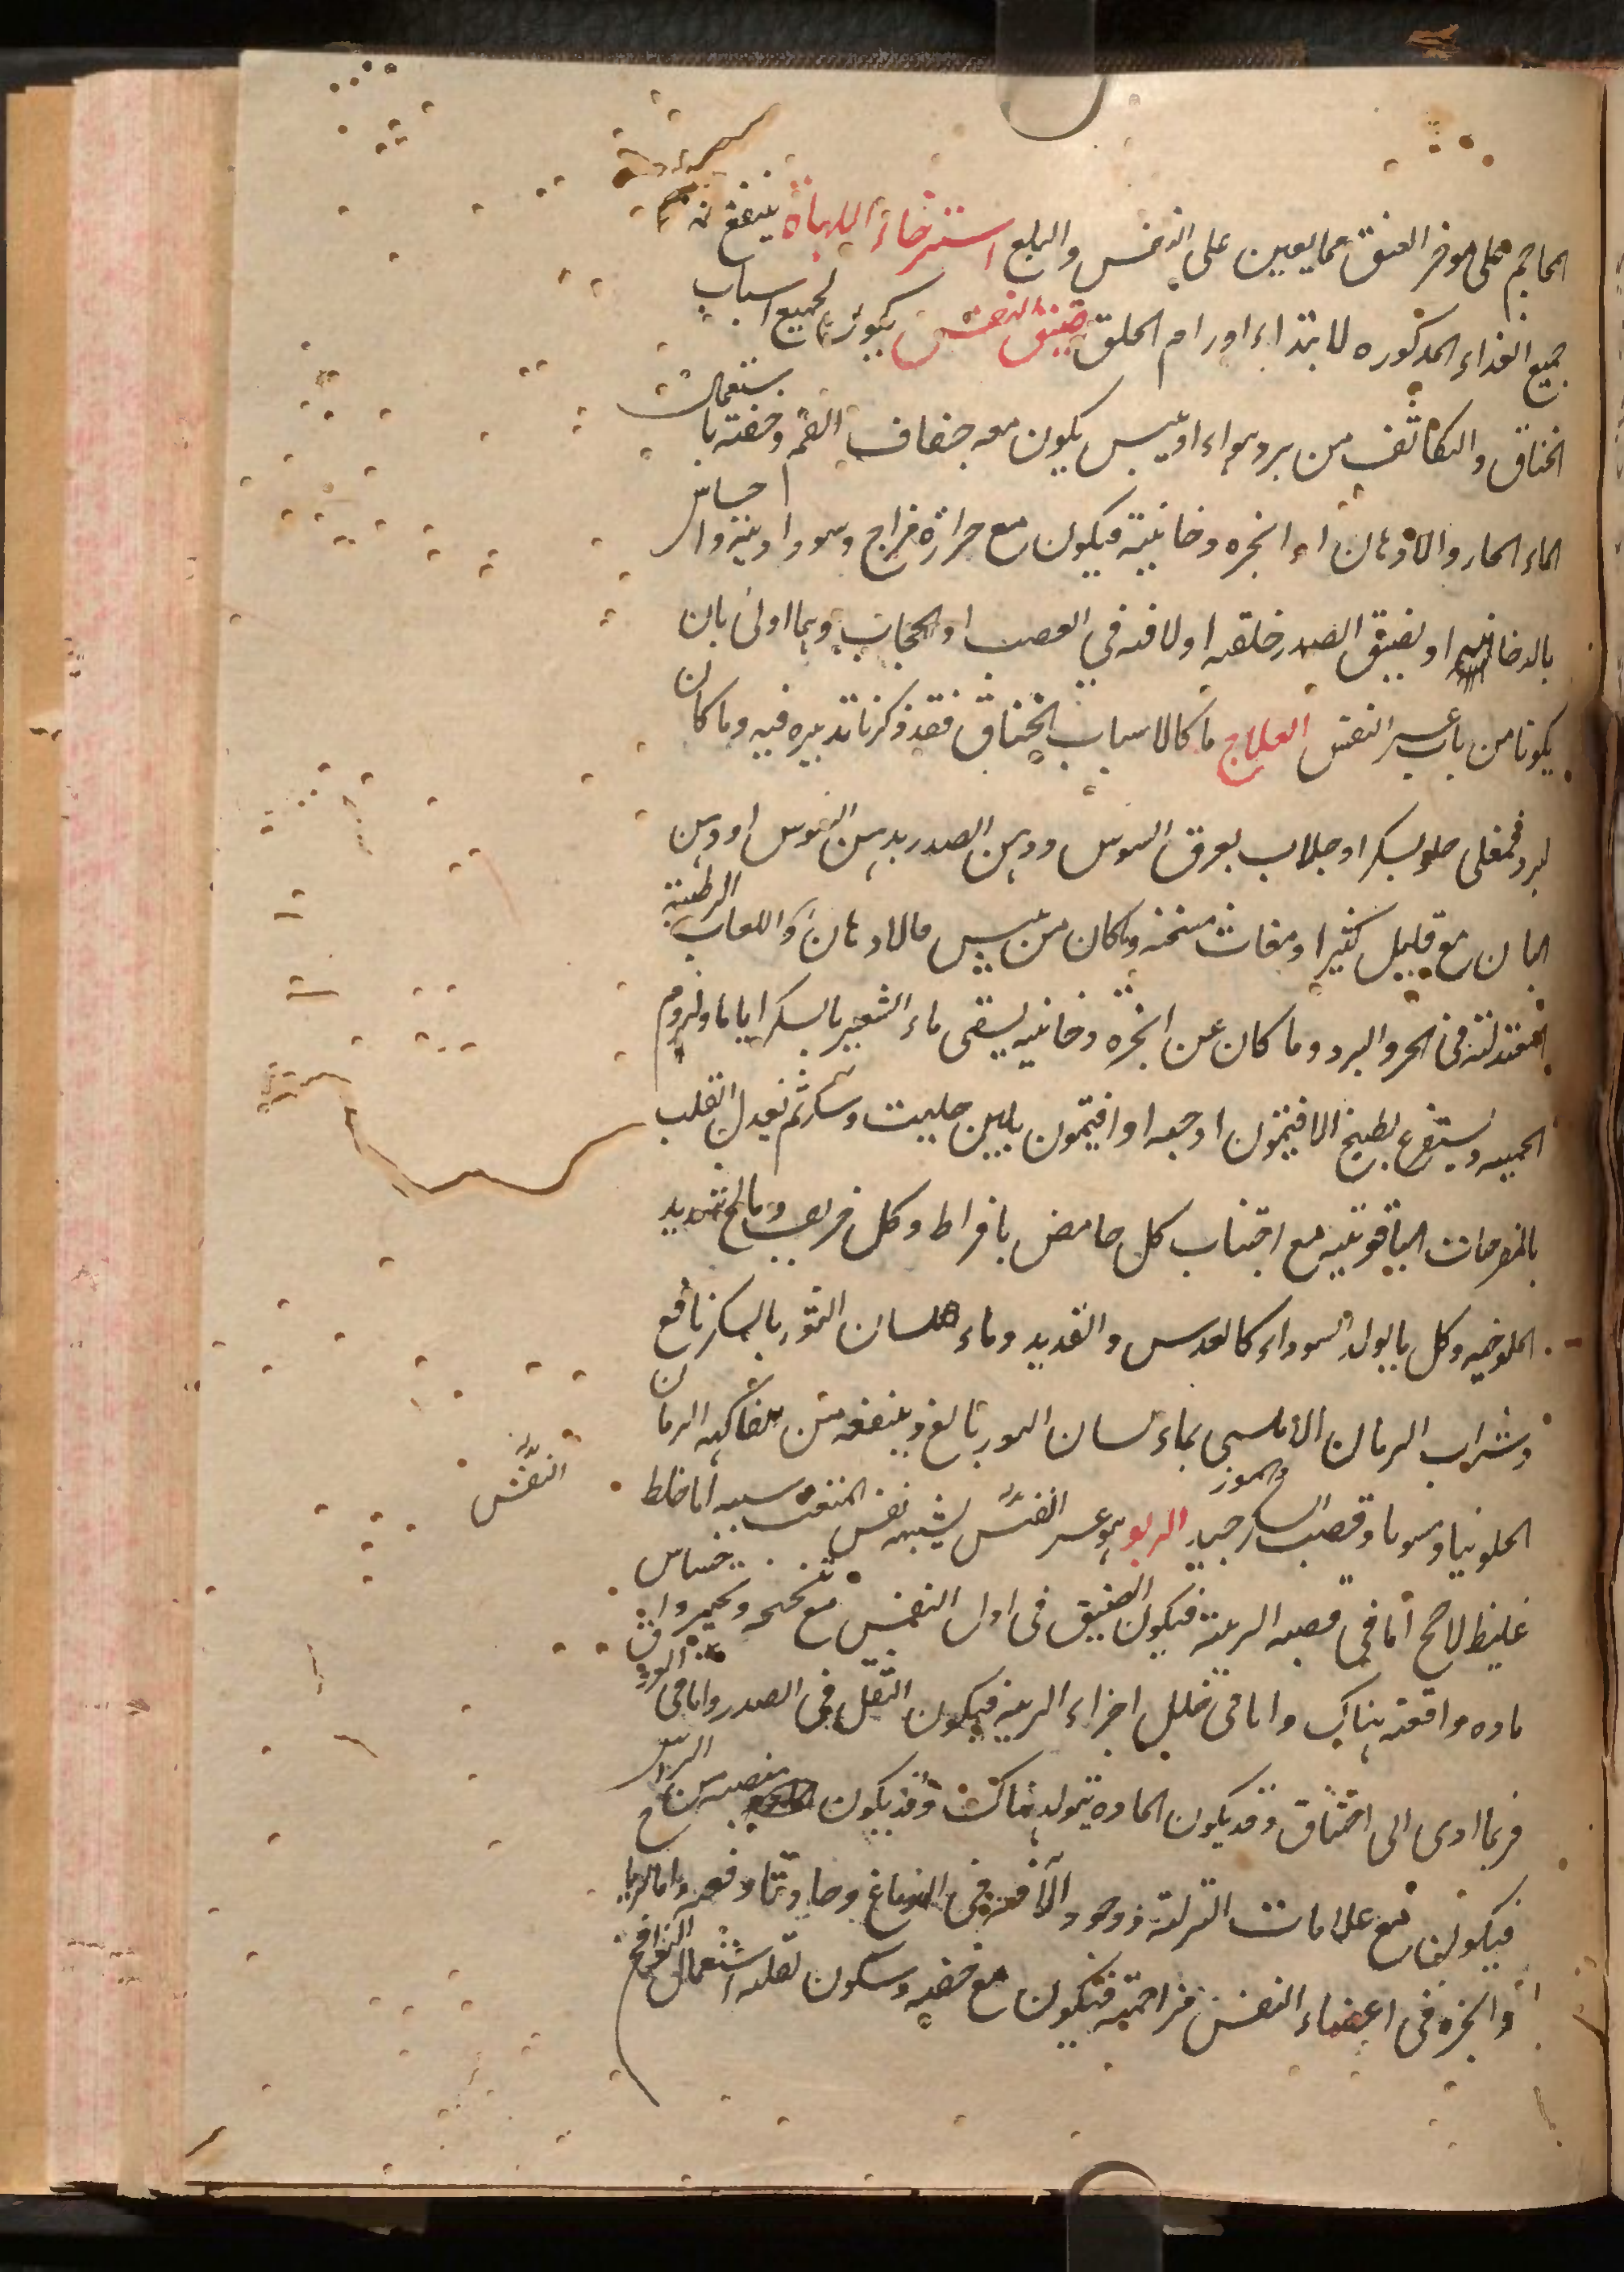 المحاجم على موخر العنق مما يعين على التنفس والبلع استرخاء اللهاة ينفع منه
جميع الغذاء المذكوره لابتداء اورام الحلق ضيق النفس يكون لجميع اسباب
الخناق والتكاثف من برد هواء او يبس يكون معه جفاف الفم وخفته باستعمال
الماء الحار والادهان او ابخره دخانية فيكون مع حرارة مزاج وسوداوية واحساس
بالدخانيه او لضيق الصدر خلقه او لافه في العصب او الحجاب وهما اولى بان
يكونا من باب عسر النفس العلاج ما كان لاسباب الخناق فقد ذكرنا تدبيره فيه وما كان
لبرد فمغلى حلو بسكر او جلاب بعرق السوس ودهن الصدر بدهن السوس او دهن
البان مع قليل كثيرا ومغاث مسخنه وما كان من يبس فالادهان واللعاب الرطبة
المعتدلة في الحر والبرد وما كان عن ابخره دخانيه يسقى ماء الشعير بالسكر اياما ولزوم
الحميه ويستفرغ بطبيخ الافتيمون او حبه او افتيمون بلبن حليب وسكر ثم تعدل القلب
بالمفرحات الياقوتيه مع اجتناب كل حامض بافراط وكل حريف ومالح شديد
الملوحه وكل ما يولد السوداء كالعدس والقديد وماء لسان الثور بالسكر نافع
وشراب الرمان الاملسي بماء لسان الثور بالغ وينفعه من الفاكهه الرمان
الحلو نيا وسوما وقصب السكر جيد والموز الربو هو عسر النفس يشبه نفس المتعب سببه اما خلط
النفس
غليظ لاحج اما في قصبه الريه فيكون الضيق في اول التنفس مع نحنحه واحساس
ماده واقفة هناك واما في خلل اجزاء الريه فيكون الثقل في الصدر واما في
فربما ادى الى اختناق وقد يكون الماده يتولد هناك وقد يكون منصبه من الراس
فيكون مع علامات النزلة ووجود الآفه في الدماغ وحادثا دفعه واما لرياح
وابخره في اعضاء النفس مزاحمة فتكون مع خفه وسكون لقله استعمال النوافخ